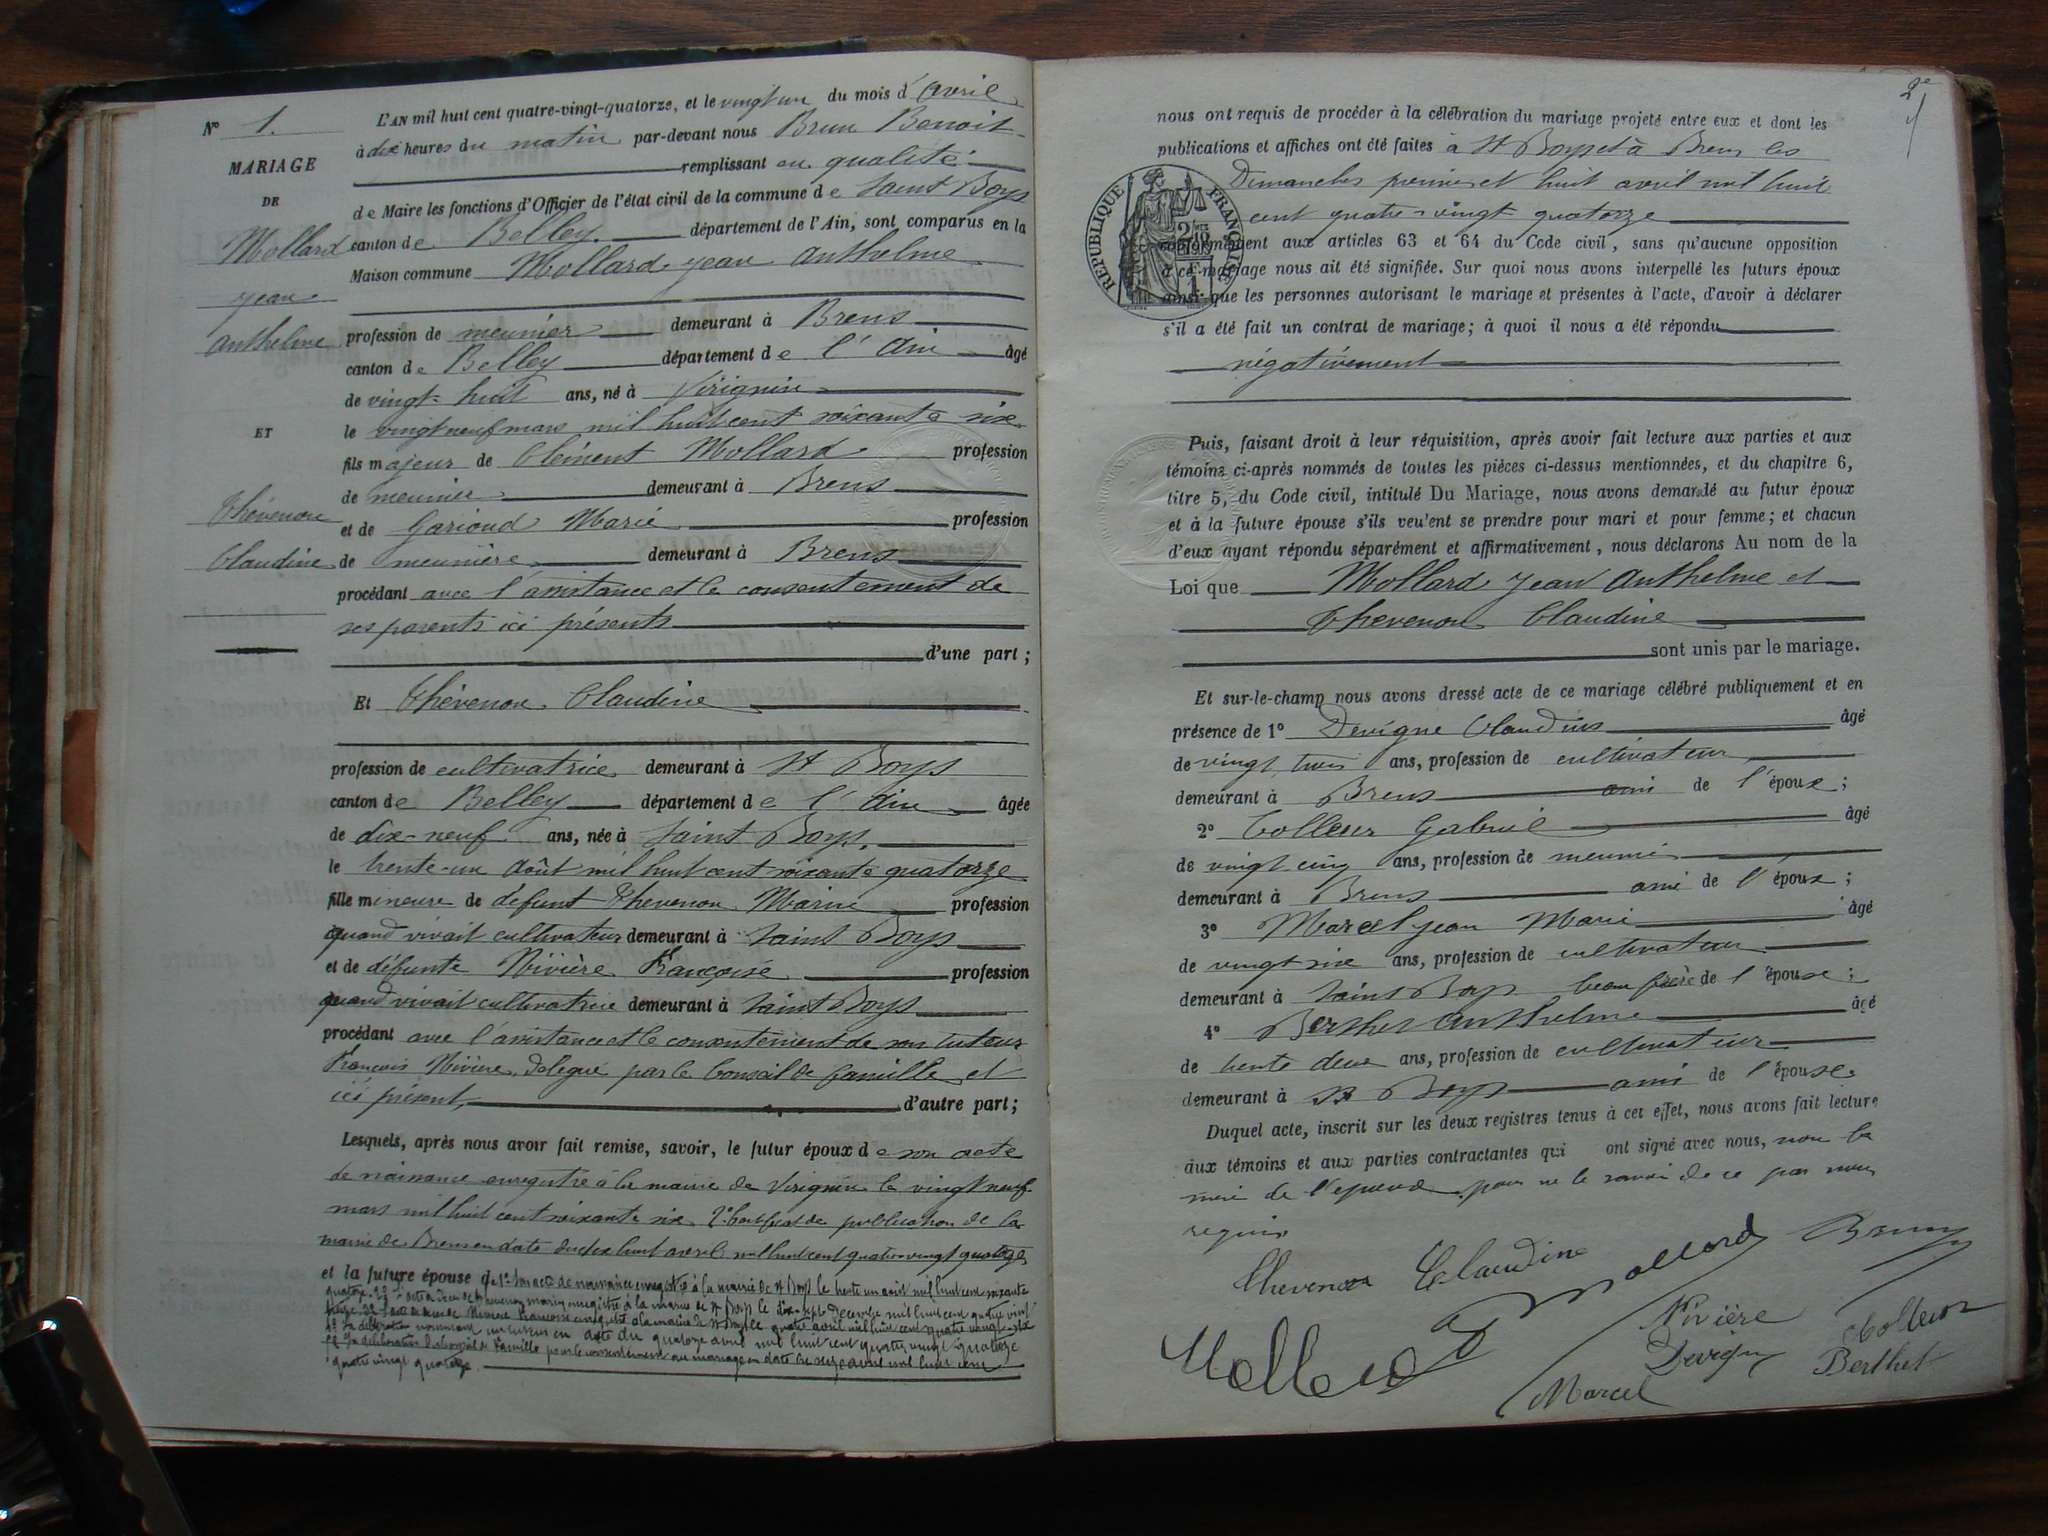 N° 1.
MARIAGE
DE
Mollard
Jean
Anthelme
ET
Thévenon
Claudine
L'AN mil huit cent quatre-vingt-quatorze, et le vingt un du mois d'avril
à dix heures du matin par-devant nous Brun Benoit
remplissant en qualité
de Maire les fonctions d'Officier de l'état civil de la commune de Saint Boys
canton de Belley. département de l'Ain, sont comparus en la
Maison commune Mollard Jean Anthelme
profession de meunier demeurant à Brens
canton de Belley département de l'Ain âgé
de vingt-huit ans, né à Virignin
le vingt neuf mars mil huit cent soixante six
fils majeur de Clément Mollard profession
de meunier demeurant à Brens
et de Garioud Marie profession
de meunière demeurant à Brens
procédant avec l'assistance et le consentement de
ses parents ici présents
d'une part;
Et Thévenon Claudine
profession de cultivatrice demeurant à St Boys
canton de Belley département de l'Ain âgée
de dix-neuf ans, née à Saint Boys.
le trente-un août mil huit cent soixante quatorze
fille mineure de défunt Thevenon Marin profession
quand vivait cultivateur demeurant à Saint Boys
et de défunte Nivière Françoise profession
quand vivait cultivatrice demeurant à Saint Boys
procédant avec l'assistance et le consentement de son tuteur
François Nivière, délégué par le Conseil de famille et
ici présent, d'autre part;
Lesquels, après nous avoir fait remise, savoir, le futur époux de son acte
de naissance enregistré à la mairie de Virignin le vingt neuf
mars mil huit cent soixante six 2° Certificat de publication de la
mairie de Brens en date du dix huit avril mil huit cent quatre vingt quatorze
et la future épouse de 1° son acte de naissance enregistré à la mairie de St Boys le trente un août mil huit cent soixante
quatorze 2° acte de décès de Thevenon Marin enregistré à la mairie de St Boys le dix-sept décembre mil huit cent quatre vingt
3° acte de décès de Nivière Françoise enregistré à la mairie de St Boys le quatre avril mil huit cent quatre vingt six
4° la délibération nommant un tuteur en date du quatorze avril mil huit cent quatre vingt quatorze
5° la délibération du Conseil de famille pour le consentement au mariage en date du seize avril mil huit cent
quatre vingt quatorze
2e
nous ont requis de procéder à la célébration du mariage projeté entre eux et dont les
publications et affiches ont été faites à St Boys et à Brens les
Dimanches premier et huit avril mil huit
cent quatre-vingt quatorze
RÉPUBLIQUE FRANÇAISE
conformément aux articles 63 et 64 du Code civil, sans qu'aucune opposition
à ce mariage nous ait été signifiée. Sur quoi nous avons interpellé les futurs époux
ainsi que les personnes autorisant le mariage et présentes à l'acte, d'avoir à déclarer
s'il a été fait un contrat de mariage; à quoi il nous a été répondu
négativement
Puis, faisant droit à leur réquisition, après avoir fait lecture aux parties et aux
témoins ci-après nommés de toutes les pièces ci-dessus mentionnées, et du chapitre 6,
titre 5, du Code civil, intitulé Du Mariage, nous avons demandé au futur époux
et à la future épouse s'ils veulent se prendre pour mari et pour femme; et chacun
d'eux ayant répondu séparément et affirmativement, nous déclarons Au nom de la
Loi que Mollard Jean Anthelme et
Thevenon Claudine
sont unis par le mariage.
Et sur-le-champ nous avons dressé acte de ce mariage célébré publiquement et en
présence de 1° Devigne Claudius âgé
de vingt trois ans, profession de cultivateur
demeurant à Brens ami de l'époux;
2° Colleur Gabriel âgé
de vingt cinq ans, profession de meunier
demeurant à Brens ami de l'époux;
3° Marcel Jean Marie âgé
de vingt six ans, profession de cultivateur
demeurant à Saint Boys beau frère de l'épouse;
4° Berthet Anthelme âgé
de trente deux ans, profession de cultivateur
demeurant à St Boys ami de l'épouse.
Duquel acte, inscrit sur les deux registres tenus à cet effet, nous avons fait lecture
aux témoins et aux parties contractantes qui ont signé avec nous, non la
mère de l'époux pour ne le savoir de ce par nous
requis
Thevenon Claudine Mollard Brun
Mollard Nivière Colleur
Devigne Berthet
Marcel